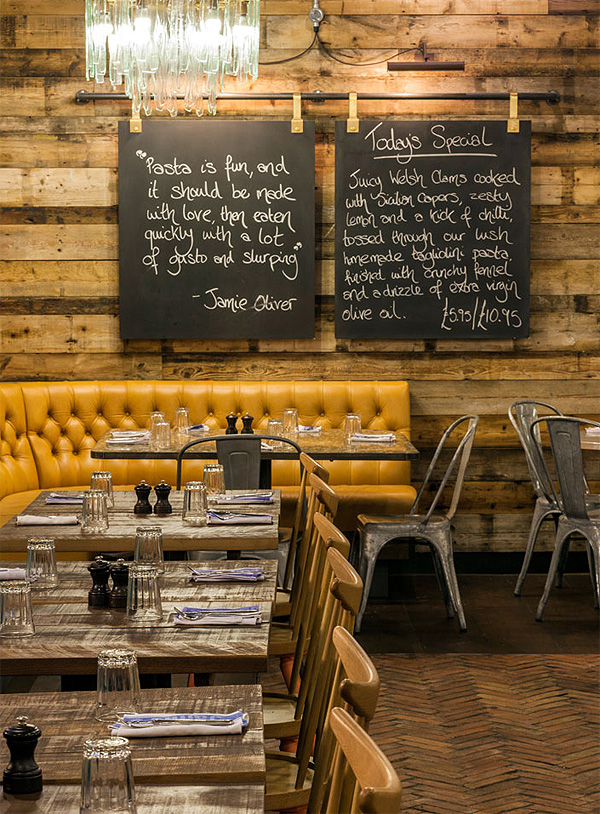 "Pasta is fun, and
it should be made
with love, then eaten
quickly with a lot
of gusto and slurping"
- Jamie Oliver
Today's Special
Juicy Welsh Clams cooked
with Sicilian capers, zesty
lemon and a kick of chilli,
tossed through our lush
homemade tagliolini pasta,
finished with crunchy fennel
and a drizzle of extra virgin
olive oil. £5.95//£10.95